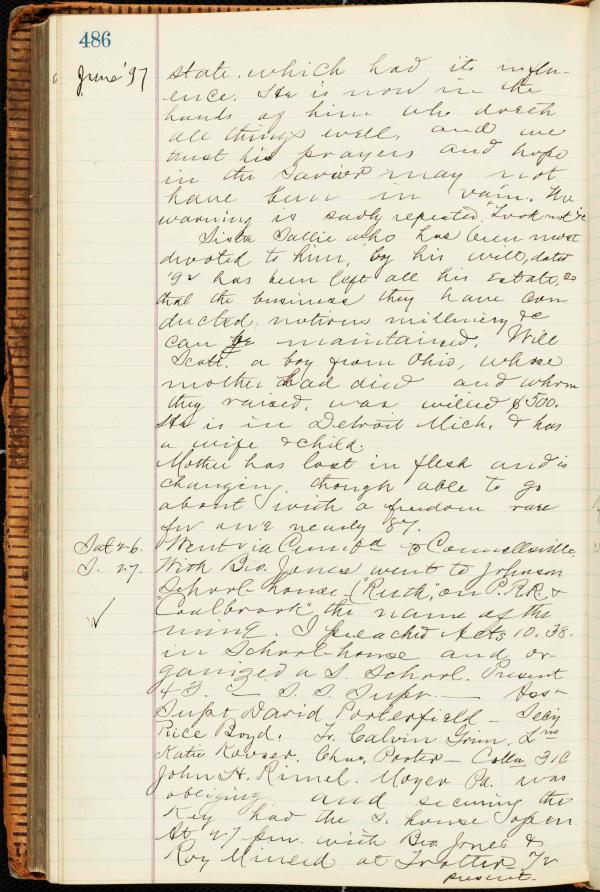 486
June '97 state. which had its influ-
ence. He is now in the
hands of him who doeth
all things well, and we
trust his prayers and hope
in the Savior may not
have been in vain. The
warning is sadly repeated. "Look not &c
Sister Sallie who has been most
devoted to him, by his will, dated
'92 has been left all his Estate, so
that the business they have con
ducted, notions millinery &c
can be maintained. Will
Scott, a boy from Ohio, whose
mother had died and whom
they raised, was willed $500.
He is in Detroit Mich. & has
a wife & child.
Mother has lost in flesh and is
changing, though able to go
about with a freedom rare
for one nearly 87.
Sat 26. Went via Cumb'd to Connellsville
S. 27. With Bro. Jones went to Johnson
School-house ("Ruth", on P.R.R. &
"Coalbrook" the name of the
mine. I preached Acts 10. 38.
in School-house and or-
ganized a S. School. Present
43. — S. S. Supt. — Ass
Supt David Porterfield — Secy
Rice Boyd. Tr. Calvin Grim,
Katie Chas. Porter — Colla, 3.10
John H. Rimel. Moyer Pa. was
obliging and securing the
Key had the S. house open
At 27 pm. with Bro. Jones &
Roy Minerd at Trotter,
present.